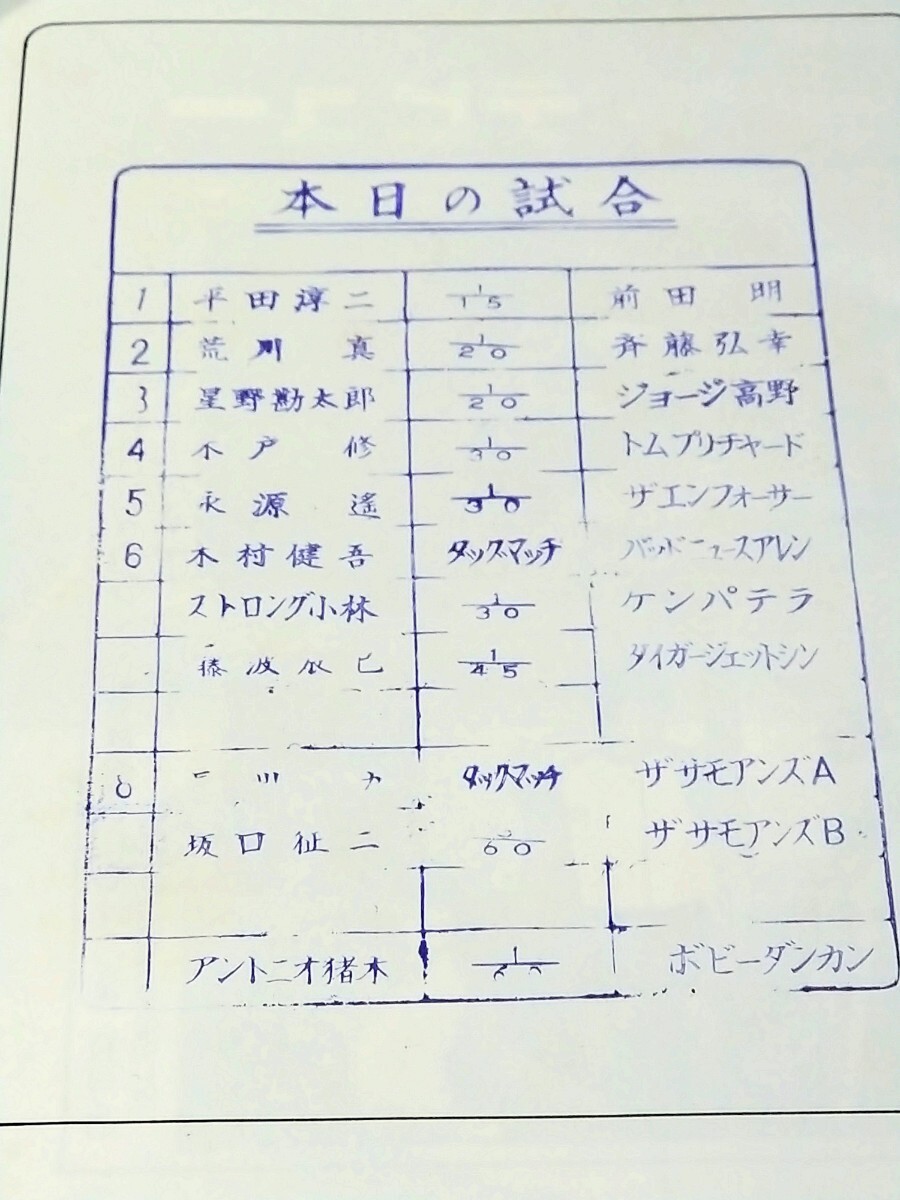 本日の試合
1 平田淳二 1/15 前田 明
2 荒川 真 1/20 斉藤弘幸
3 星野勘太郎 1/20 ジョージ高野
4 木戸 修 1/30 トムプリチャード
5 永源 遙 1/30 ザエンフォーサー
6 木村健吾 タッグマッチ バッドニュースアレン
ストロング小林 1/30 ケンパテラ
藤波辰巳 1/45 タイガージェットシン
タッグマッチ ザサモアンズA
坂口征二 60 ザサモアンズB
アントニオ猪木 1 ボビーダンカン